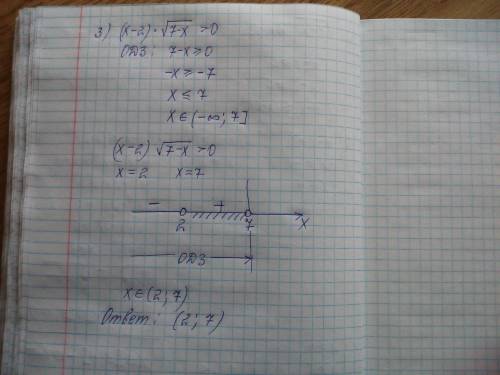 3) (x-2)·√7-x >0
ОДЗ: 7-x≥0
-x≥-7
x≤7
x∈(-∞; 7]
(x-2) √7-x >0
x=2 x=7
- +
2 7 x
ОДЗ
x∈(2; 7)
Ответ: (2; 7)